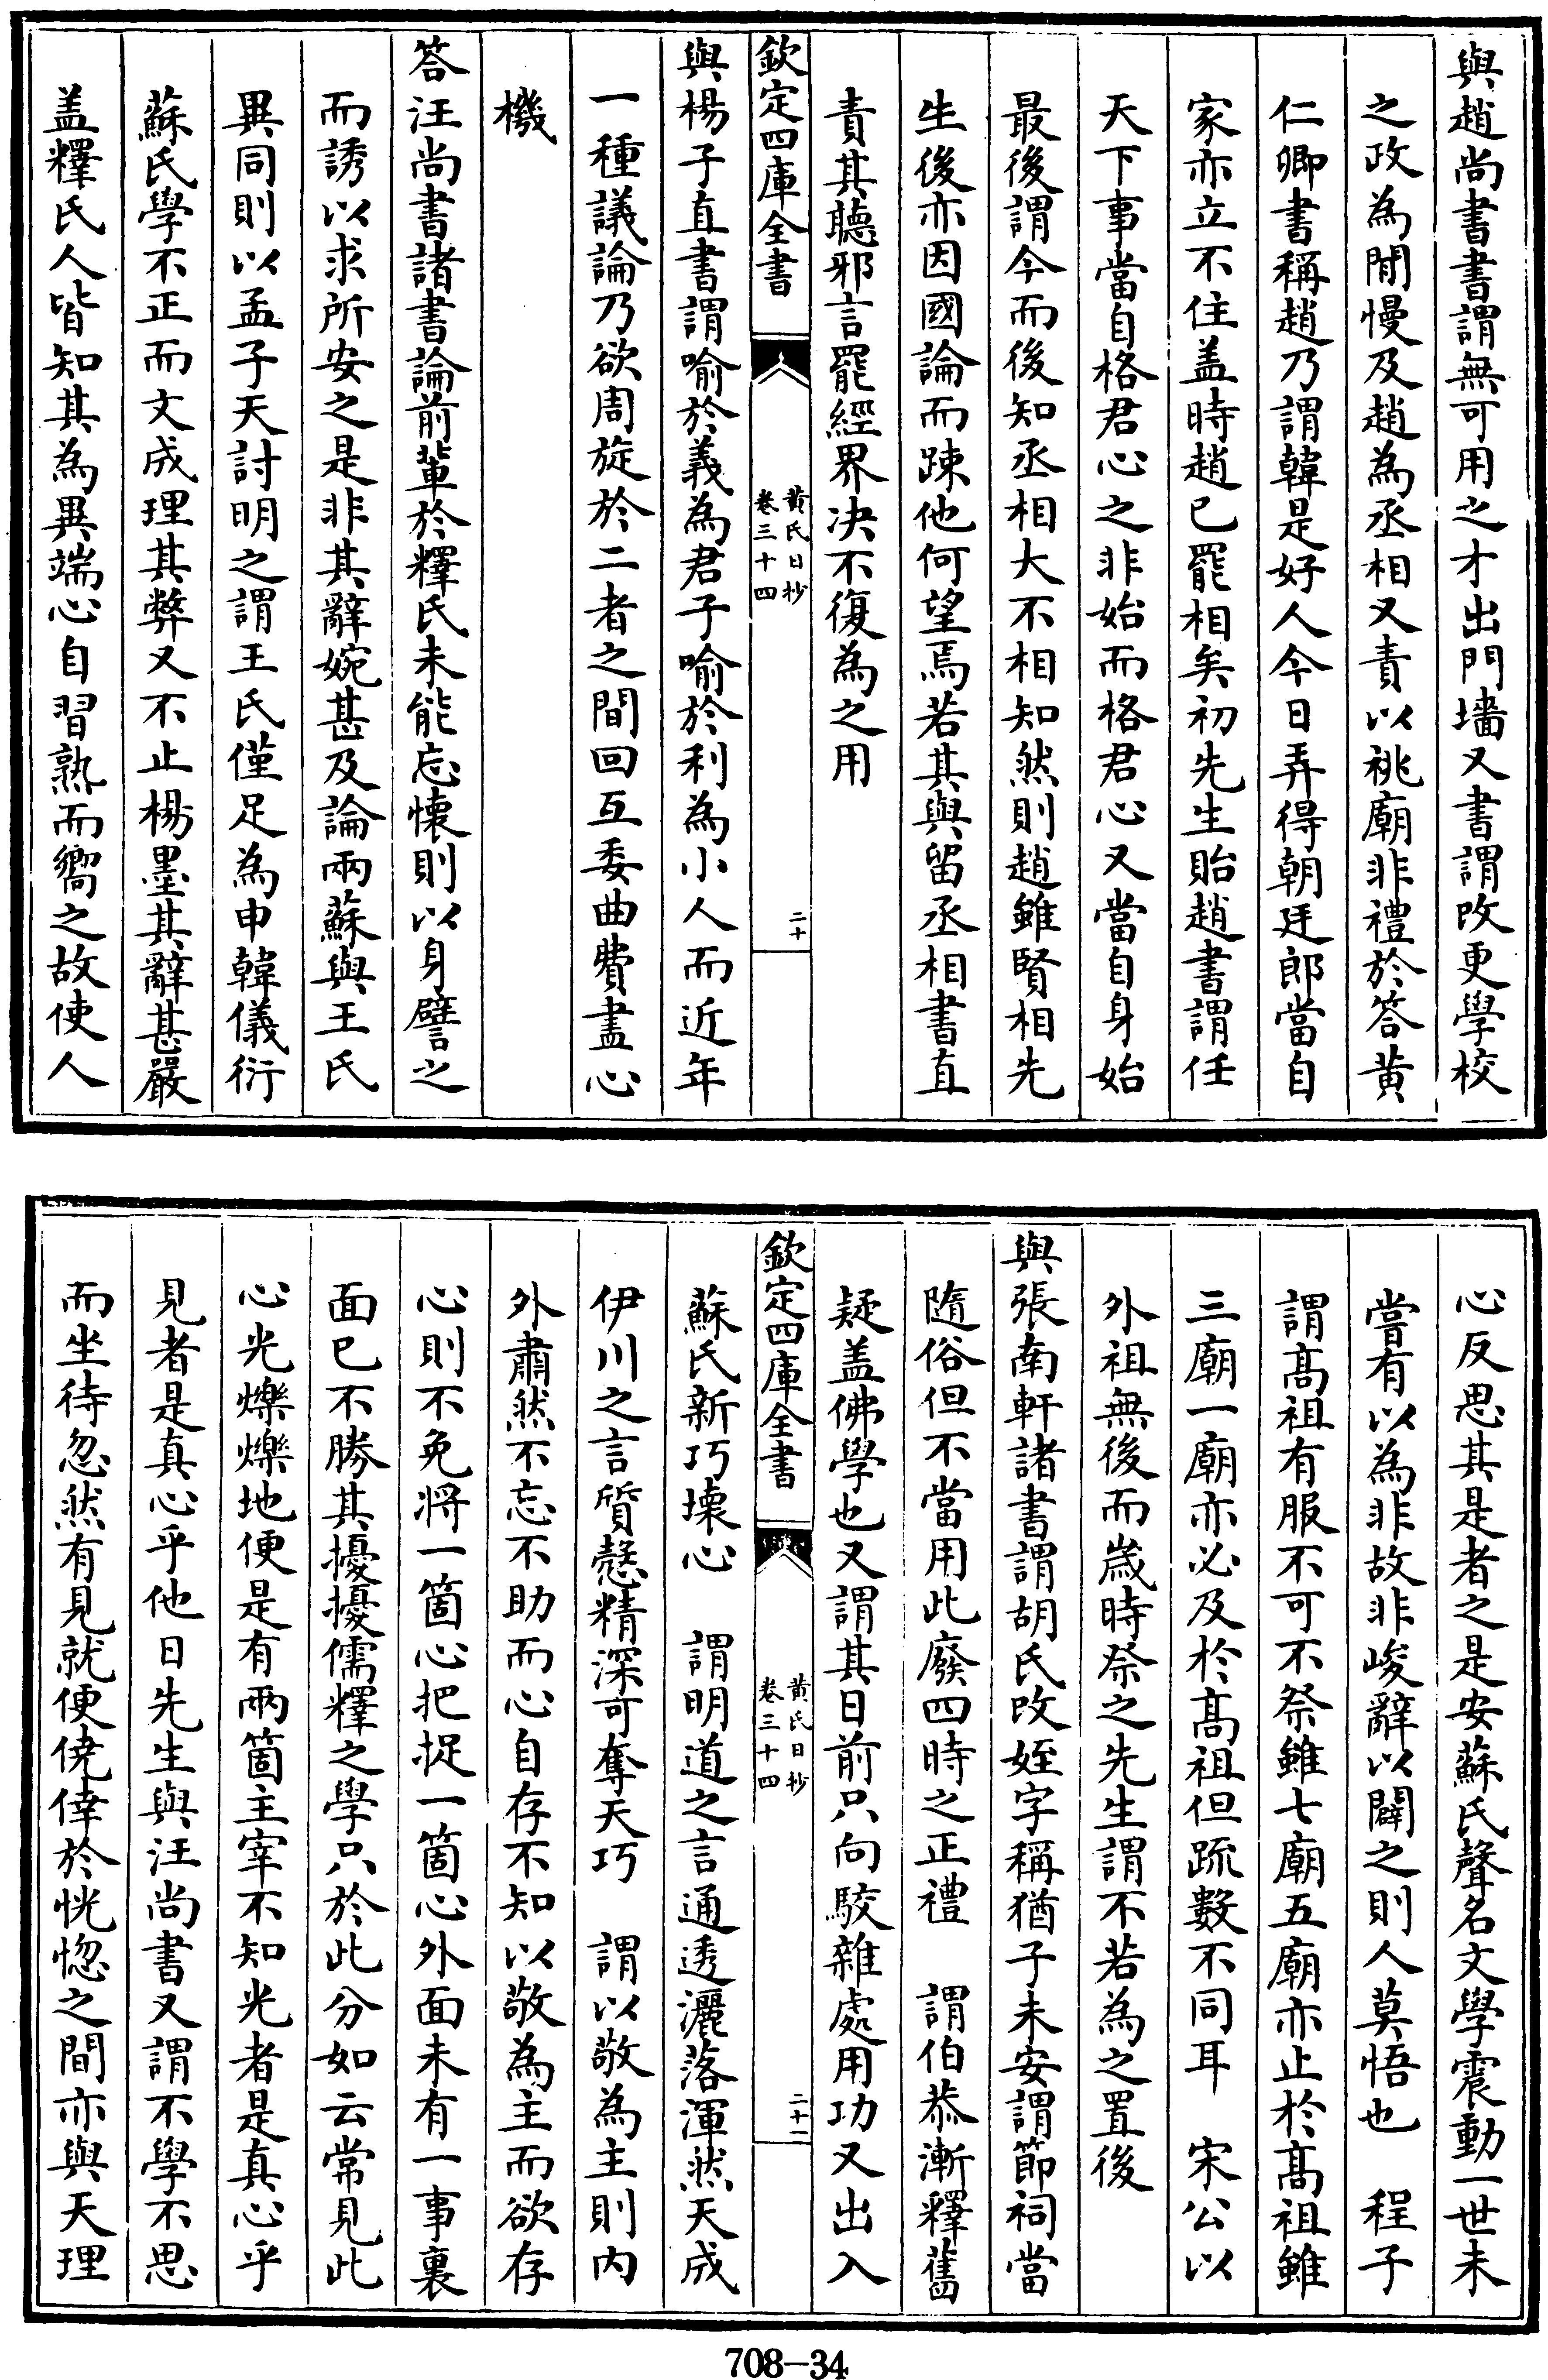 與趙尚書書謂無可用之才出門墻又書謂改更學校
之政為閒慢及趙為丞相又責以祧廟非禮於答黄
仁卿書稱趙乃謂韓是好人今日弄得朝廷郎當自
家亦立不住盖時趙已罷相矣初先生貽趙書謂任
天下事當自格君心之非始而格君心又當自身始
最後謂今而後知丞相大不相知然則趙雖賢相先
生後亦因國論而踈他何望焉若其與留丞相書直
責其聽邪言罷經界决不復為之用
欽定四庫全書
黄氏日抄
卷三十四
二十
與楊子直書謂喻於義為君子喻於利為小人而近年
一種議論乃欲周旋於二者之間回互委曲費盡心
機
答汪尚書諸書論前輩於釋氏未能忘懷則以身譬之
而誘以求所安之是非其辭婉甚及論兩蘇與王氏
異同則以孟子天討明之謂王氏僅足為申韓儀衍
蘇氏學不正而文成理其弊又不止楊墨其辭甚嚴
盖釋氏人皆知其為異端心自習熟而嚮之故使人
心反思其是者之是安蘇氏聲名文學震動一世未
嘗有以為非故非峻辭以闢之則人莫悟也 程子
謂髙祖有服不可不祭雖七廟五廟亦止於髙祖雖
三廟一廟亦必及於髙祖但䟽數不同耳 宋公以
外祖無後而歲時祭之先生謂不若為之置後
與張南軒諸書謂胡氏改姪字稱猶子未安謂節祠當
隨俗但不當用此廢四時之正禮 謂伯恭漸釋舊
疑盖佛學也又謂其日前只向駮雜處用功又出入
欽定四庫全書
黄氏日抄
卷三十四
二十一
蘇氏新巧壊心 謂明道之言通透灑落渾然天成
伊川之言質慤精深可奪天巧 謂以敬為主則内
外肅然不忘不助而心自存不知以敬為主而欲存
心則不免将一箇心把捉一箇心外面未有一事裏
面已不勝其擾擾儒釋之學只於此分如云常見此
心光爍爍地便是有兩箇主宰不知光者是真心乎
見者是真心乎他日先生與汪尚書又謂不學不思
而坐待忽然有見就便僥倖於恍惚之間亦與天理
708-34